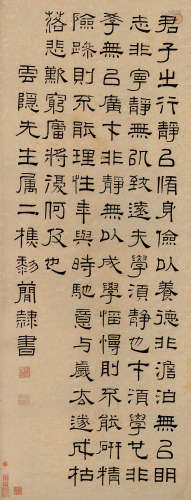 君子之行靜㠯脩身儉以養德非澹泊無㠯明
志非寧靜無㠯致遠夫學須靜也才須學也非
學無㠯廣才非靜無以成學慆慢則不能研精
險躁則不能理性年與時馳意與歲去遂成枯
落悲歎窮廬將復何及也
雲隱先生屬二樵黎簡隸書